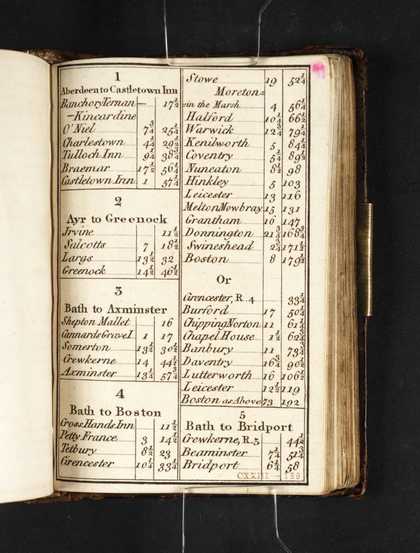 1
Aberdeen to Castletown Inn
Banchory Ternan — 17½
— Kincardine
O'Niel 7¾ 25¼
Charlestown 4¼ 29½
Tulloch Inn 9¼ 38¾
Braemar 17½ 56¼
Castletown Inn 1 57¼
2
Ayr to Greenock
Irvine 11½
Salcotts 7 18½
Largs 13½ 32
Greenock 14½ 46½
3
Bath to Axminster
Shepton Mallet 16
Cannards Grave I 1 17
Somerton 13½ 30½
Crewkerne 14 44½
Axminster 13¼ 57¾
4
Bath to Boston
Cross Hands Inn 11½
Petty France 3 14½
Tetbury 8½ 23
Cirencester 10¼ 33¼
Stowe 19 52¼
Moreton
in the Marsh 4 56¼
Halford 10¼ 66½
Warwick 12¾ 79¼
Kenilworth 5 84¼
Coventry 5¼ 89½
Nuneaton 8½ 98
Hinkley 5 103
Leicester 13 116
Melton Mowbray 15 131
Grantham 16 147
Donnington 21¾ 168¾
Swineshead 2¾ 171½
Boston 8 179½
Or
Cirencester, R. 4 33¼
Burford 17 50¼
Chipping Norton 11 61¼
Chapel House 1¼ 62½
Banbury 11 73½
Daventry 16¾ 90¼
Lutterworth 16 106¼
Leicester 12¾ 119
Boston as Above 73 192
5
Bath to Bridport
Crewkerne, R. 3 44½
Beaminster 7¼ 51¾
Bridport 6¼ 58